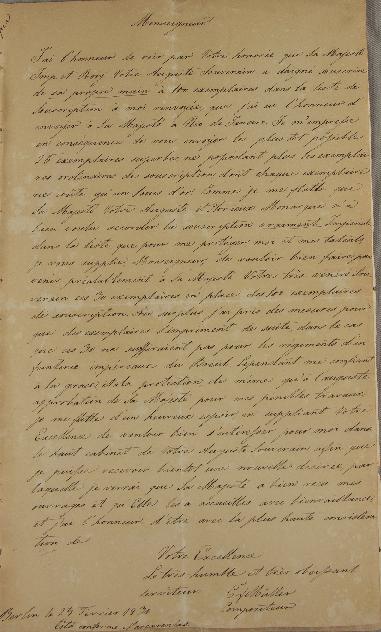 Monseigneur
J'ai l'honneur de voir par Votre honorée que Sa Majesté
Imp et Roy Votre Auguste Souverain a daigné souscrire
de sa propre main à 100 exemplaires dans la liste de
souscription à moi renvoyée, que j'ai eu l'honneur d'
envoyer à Sa Majesté à Rio de Janeiro. Je m'empresse
en conséquence de vous envoyer le plus tôt possible
25 exemplaires superbes ne possédant plus les exemplai-
res ordinaires de souscription dont chaque exemplaire
ne coûte qu'un Louis d'or. Comme je me flatte que
Sa Majesté Votre Auguste et Glorieux Monarque n'a
bien voulu accorder la souscription
dans la liste que pour me protéger moi et mes talents,
je vous supplie Monseigneur, de vouloir bien faire par-
venir préalablement à Sa Majesté Votre très Souve-
rain ces 30 exemplaires en place des 100 exemplaires
de souscription. Au surplus j'ai pris des mesures pour
que des exemplaires s'impriment de suite dans le cas
que ces 30 ne suffiraient pas pour les régiments d'in-
fanterie impériaux du Brésil. Cependant me confiant
à la grace et la protection de même qu'à l'auguste
approbation de Sa Majesté pour mes pénibles travaux
je me flatte d'un heureux espoir en suppliant Votre
Excellence de vouloir bien s'intéresser pour moi dans
le haut cabinet de Votre Auguste Souverain afin que
je puisse recevoir bientôt une nouvelle désirée par
laquelle je verrai que Sa Majesté a bien reçu mes
ouvrages et qu'Elle les a accueillis avec bienveillance
et j'ai l'honneur d'être avec la plus haute considéra-
tion de
Votre Excellence
Le très humble et très obéissant
serviteur
Compositeur
Berlin le 23 Février 1830